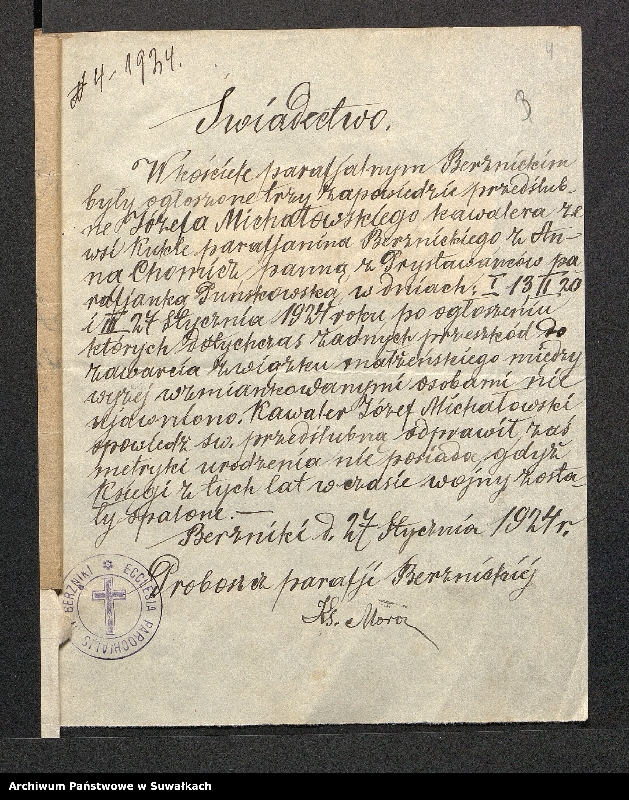 № 4 - 1924.
4
3
Świadectwo.
W kościele parafjalnym Berżnickim
były ogłoszone trzy zapowiedzie przedślub-
ne Józefa Michałowskiego kawalera ze
wsi Kukle parafjanina Berżnickiego z An-
na Chomicz panną z Przystawańców pa
rafjanką Puńskowską w dniach: I 13 II 20
i III 27 Stycznia 1924 roku po ogłoszeniu
których dotychczas żadnych przeszkód do
zawarcia związku małżeńskiego między
wyżej wzmiankowanymi osobami nie
ujawniono. Kawaler Józef Michałowski
spowiedź św. przedślubną odprawił, zaś
metryki urodzenia nie posiada, gdyż
Księgi z tych lat w czasie wojny zosta
ły spalone. —
Berżniki d. 27 Stycznia 1924 r.
Proboszcz parafji Berżnickiej
Ks. Moroz
ECCLESIA PAROCHIALIS BERŻNIKI
Archiwum Państwowe w Suwałkach